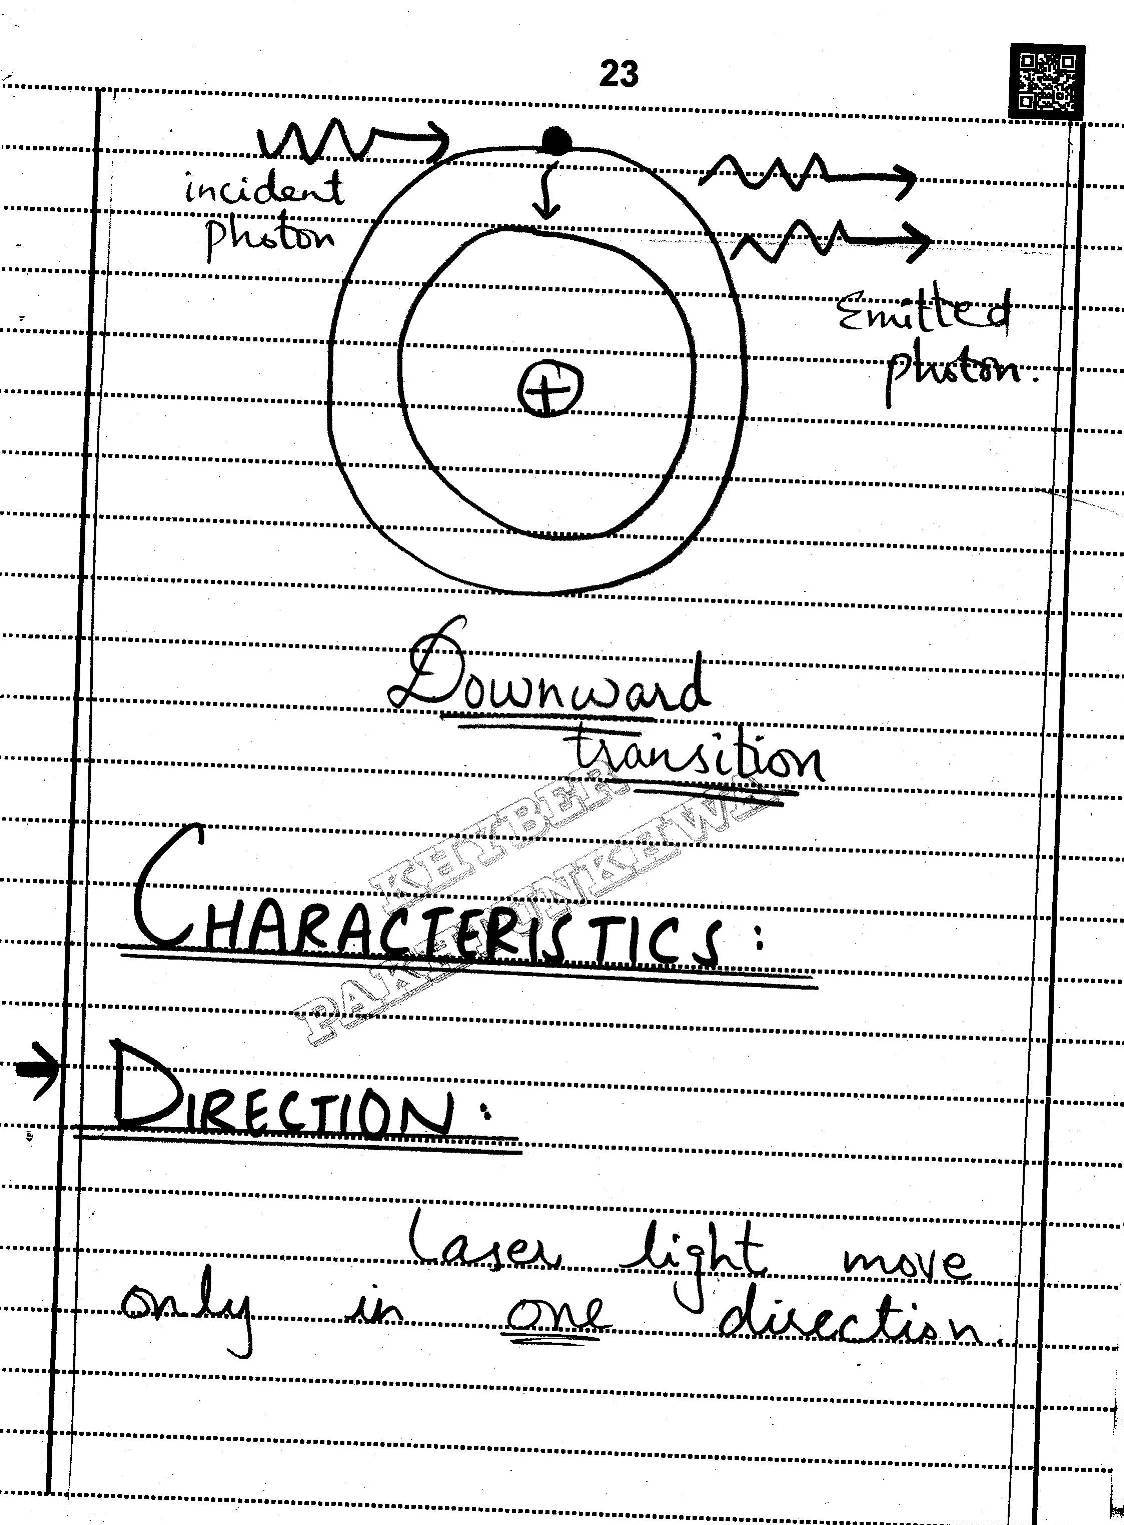 23
incident
photon
Emitted
photon.
Downward
transition
KHYBER
PAKHTUNKHWA
CHARACTERISTICS:
DIRECTION:
Laser light move
only in one direction.